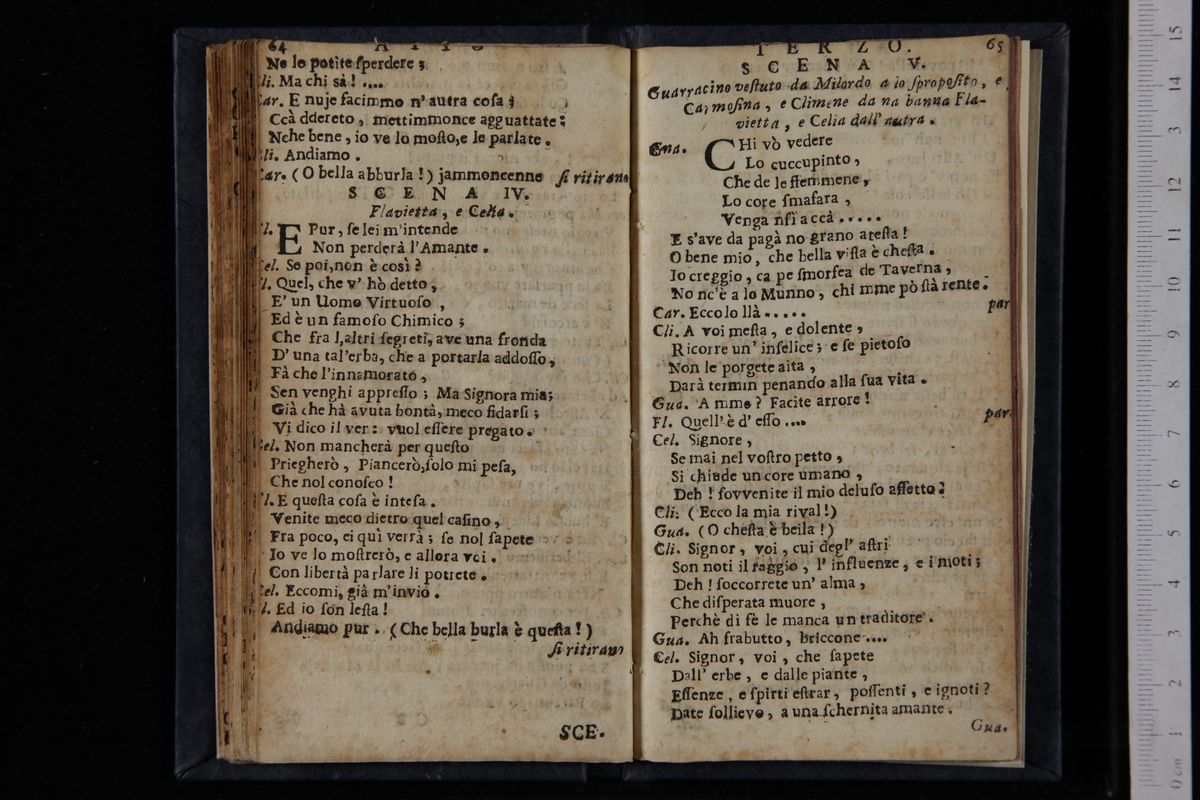 64 A T T O
Ne le potite sperdere;
Cli. Ma chi sà! ....
Car. E nuje facimmo n'autra cosa;
Ccà ddereto, mettimmonce agguattate;
Nche bene, io ve lo mosto, e le parlate.
Cli. Andiamo.
Car. (O bella abburla!) jammoncenne si ritirano
S C E N A IV.
Flavietta, e Celia.
Fl. E Pur, se lei m'intende
Non perderà l'Amante.
Cel. Se poi, non è così?
Fl. Quel, che v' hò detto,
E' un Uomo Virtuoso,
Ed è un famoso Chimico;
Che fra l,altri segreti, ave una fronda
D' una tal'erba, che a portarla addosso,
Fà che l'innamorato,
Sen venghi appresso; Ma Signora mia;
Già che hà avuta bontà, meco fidarsi;
Vi dico il ver: vuol essere pregato.
Cel. Non mancherà per questo
Priegherò, Piancerò, solo mi pesa,
Che nol conosco!
Fl. E questa cosa è intesa.
Venite meco dietro quel casino,
Fra poco, ei quì verrà; se nol sapete
Io ve lo mostrerò, e allora voi.
Con libertà parlare li potrete.
Cel. Eccomi, già m'invio.
Fl. Ed io son lesta!
Andiamo pur. (Che bella burla è questa!)
si ritirano
SCE.
T E R Z O. 65
S C E N A V.
Guarracino vestuto da Milordo a lo sproposito, e
Carmosina, e Climene da na banna Fla-
vietta, e Celia dall' autra.
Gua. CHi vò vedere
Lo cuccupinto,
Che de le ffemmene,
Lo core smafara,
Venga nfì accà.....
E s'ave da pagà no grano aresta!
O bene mio, che bella vista è chesta.
Io creggio, ca pe smorfea de Taverna,
No nc'è a lo Munno, chi mme pò stà rente.
Car. Eccolo llà..... par
Cli. A voi mesta, e dolente,
Ricorre un' infelice; e se pietoso
Non le porgete aita,
Darà termin penando alla sua vita.
Gua. A mme? Facite arrore!
Fl. Quell' è d' esso.... par.
Cel. Signore,
Se mai nel vostro petto,
Si chiude un core umano,
Deh! sovvenite il mio deluso affetto?
Cli. (Ecco la mia rival!)
Gua. (O chesta è bella!)
Cli. Signor, voi, cui degl' astri
Son noti il raggio, l' influenze, e i moti;
Deh! soccorrete un' alma,
Che disperata muore,
Perchè di fè le manca un traditore.
Gua. Ah frabutto, briccone....
Cel. Signor, voi, che sapete
Dall' erbe, e dalle piante,
Essenze, e spirti estrar, possenti, e ignoti?
Date sollievo, a una schernita amante.
Gua.